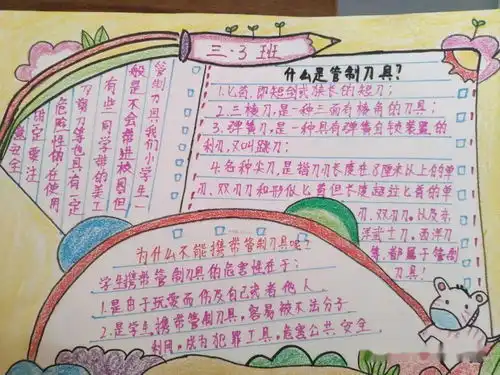 三·3 班
管制刀具,我们小学生一
般是不会带进校园,但
有些同学带的美工
刀剪刀等也具有一定
危险性 在使用
时定要注
意安全
什么是管制刀具?
1.匕首,即短剑或狭长的短刀;
2.三棱刀,是一种三面有棱角的刀具;
3.弹簧刀,是一种具有弹簧自锁装置的
利刀,又叫跳刀;
4.各种尖刀,是指刀刃长度在8厘米以上的单
刃、双刃刀和形似匕首但长度超过匕首的单
刃、双刃刀。以及东
洋武士刀、西洋刀
等都属于管制
刀具!
为什么不能携带管制刀具呢?
学生携带管制刀具的危害性在于:
1.是由于玩耍而伤及自己或者他人
2.是学生携带管制刀具,容易被不法分子
利用,成为犯罪工具,危害公共安全